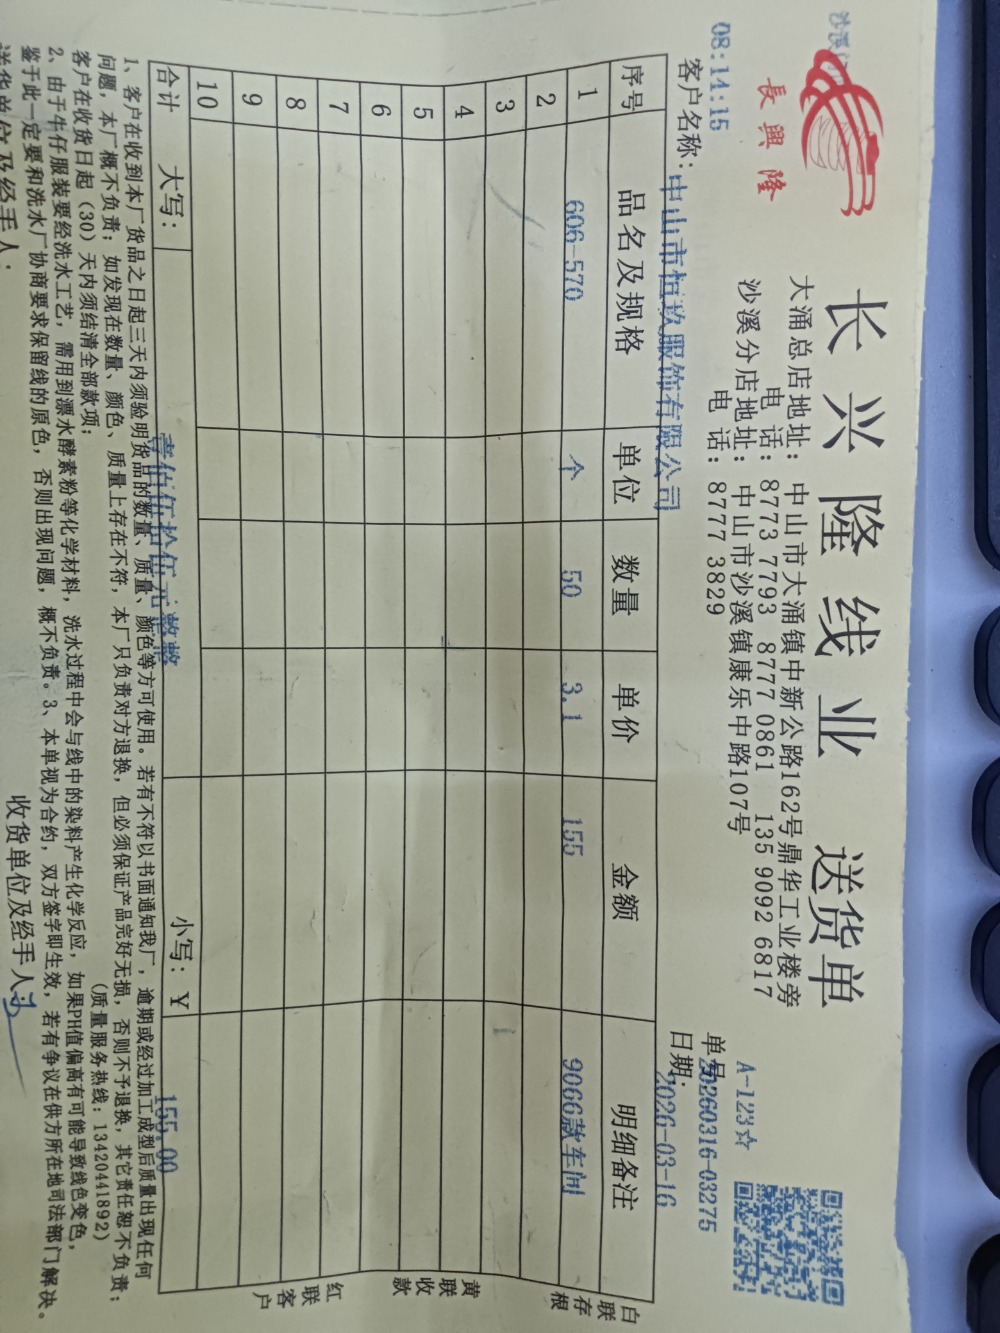 長興隆
长兴隆线业 送货单
大涌总店地址：中山市大涌镇中新公路162号鼎华工业楼旁
电话：8773 7793 8777 0861 135 9092 6817
沙溪分店地址：中山市沙溪镇康乐中路107号
电话：8777 3829
A-123☆
08:14:15
单号：20260316-03275
客户名称：中山市恒玖服饰有限公司
日期：2026-03-16
序号 品名及规格 单位 数量 单价 金额 明细备注
1 606-570 个 50 3.1 155 9066款车间
2
3
4
5
6
7
8
9
10
合计 大写：壹佰伍拾伍元整 小写：￥ 155.00
白联存根
黄联收款
红联客户
1、客户在收到本厂货品之日起三天内须验明货品的数量、质量、颜色等方可使用。若有不符以书面通知我厂，逾期或经过加工成型后质量出现任何
问题，本厂概不负责；如发现在数量、颜色、质量上存在不符，本厂只负责对方退换，但必须保证产品完好无损，否则不予退换，其它责任恕不负责；
客户在收货日起（30）天内须结清全部款项； （质量服务热线：13420441892）
2、由于牛仔服装要经洗水工艺，需用到漂水酵素粉等化学材料，洗水过程中会与线中的染料产生化学反应，如果PH值偏高有可能导致线色变色，
鉴于此一定要和洗水厂协商要求保留线的原色，否则出现问题，概不负责。3、本单视为合约，双方签字即生效，若有争议在供方所在地司法部门解决。
送货单位及经手人： 收货单位及经手人：